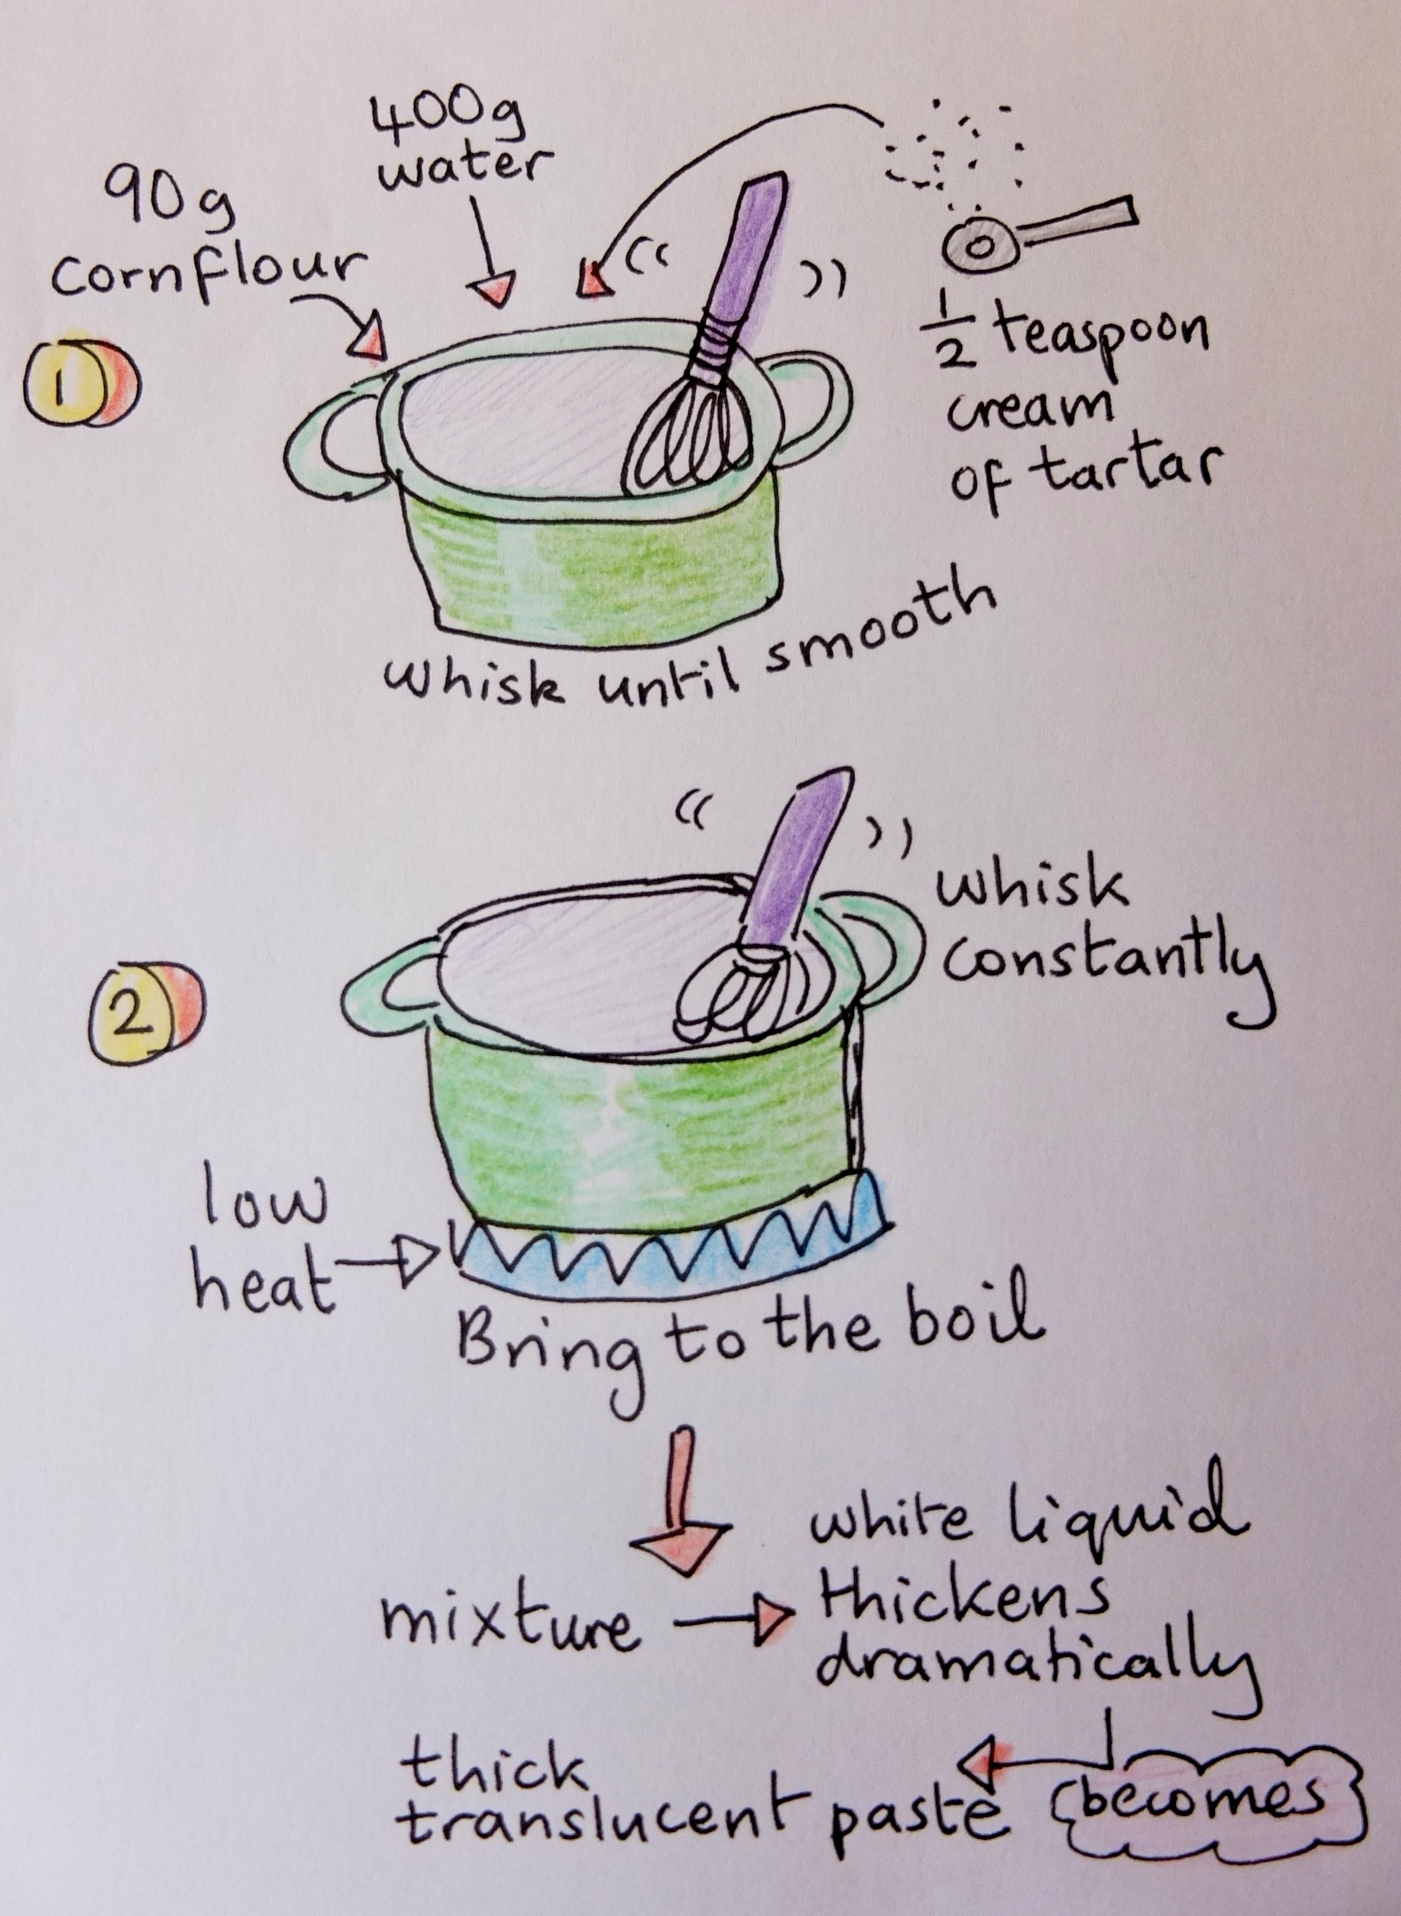 400g
water
90g
cornflour
1
1/2 teaspoon
cream
of tartar
whisk until smooth
whisk
constantly
2
low
heat
Bring to the boil
white liquid
mixture
thickens
dramatically
thick
translucent paste
becomes